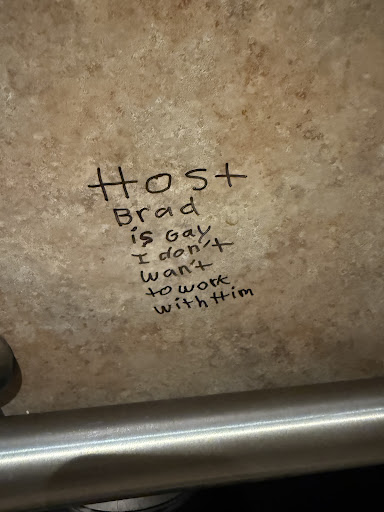 Host
Brad
is Gay
I don't
wan't
to work
with Him